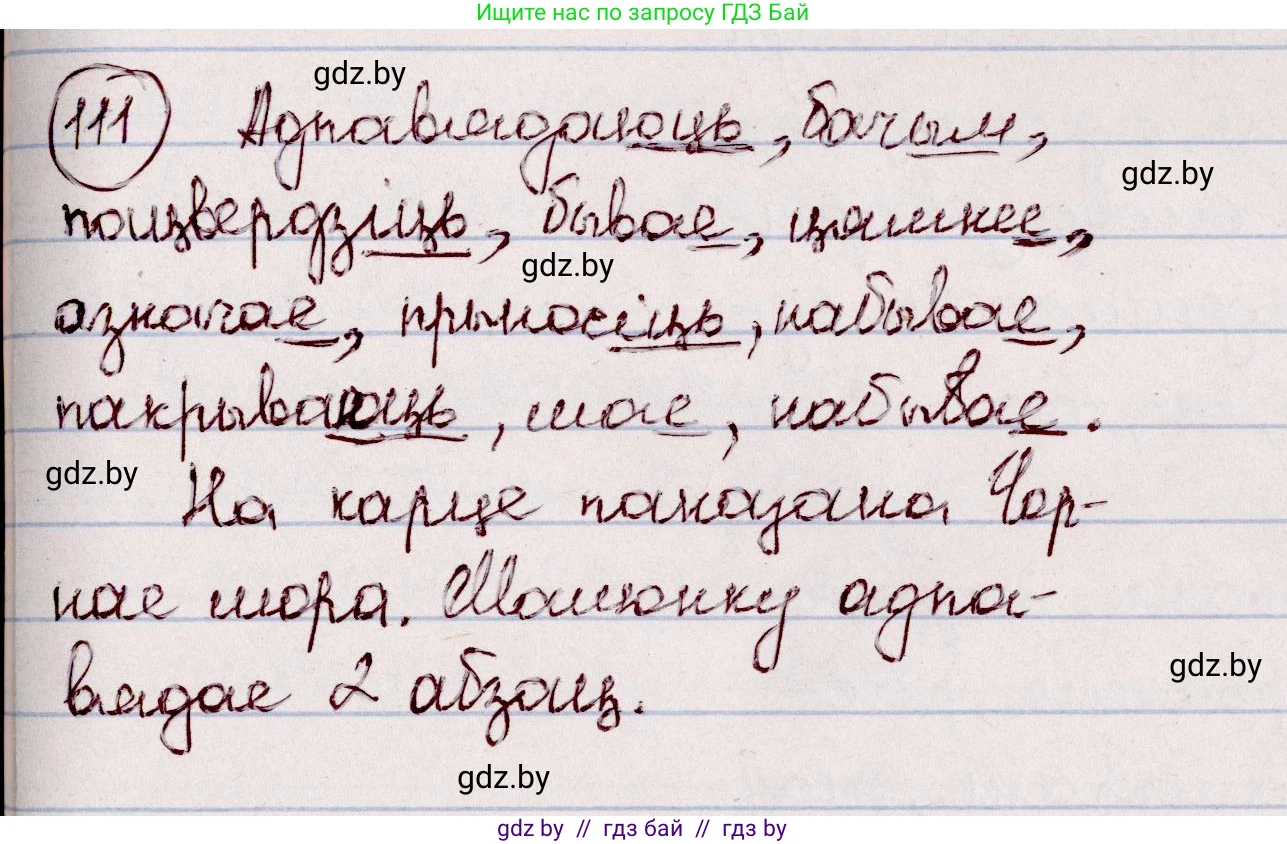 Ищите нас по запросу ГДЗ Бай
gdz.by
111 Адпавядаюць, бачым,
gdz.by
пацвердзіць, бывае, цямнее,
gdz.by
азначае, прыносіць, набывае,
пакрываюць, мае, набывае.
gdz.by
На карце паказана Чор-
нае мора. Малюнку адпа-
вядае 2 абзац.
gdz.by
gdz.by
gdz by // гдз бай // гдз by